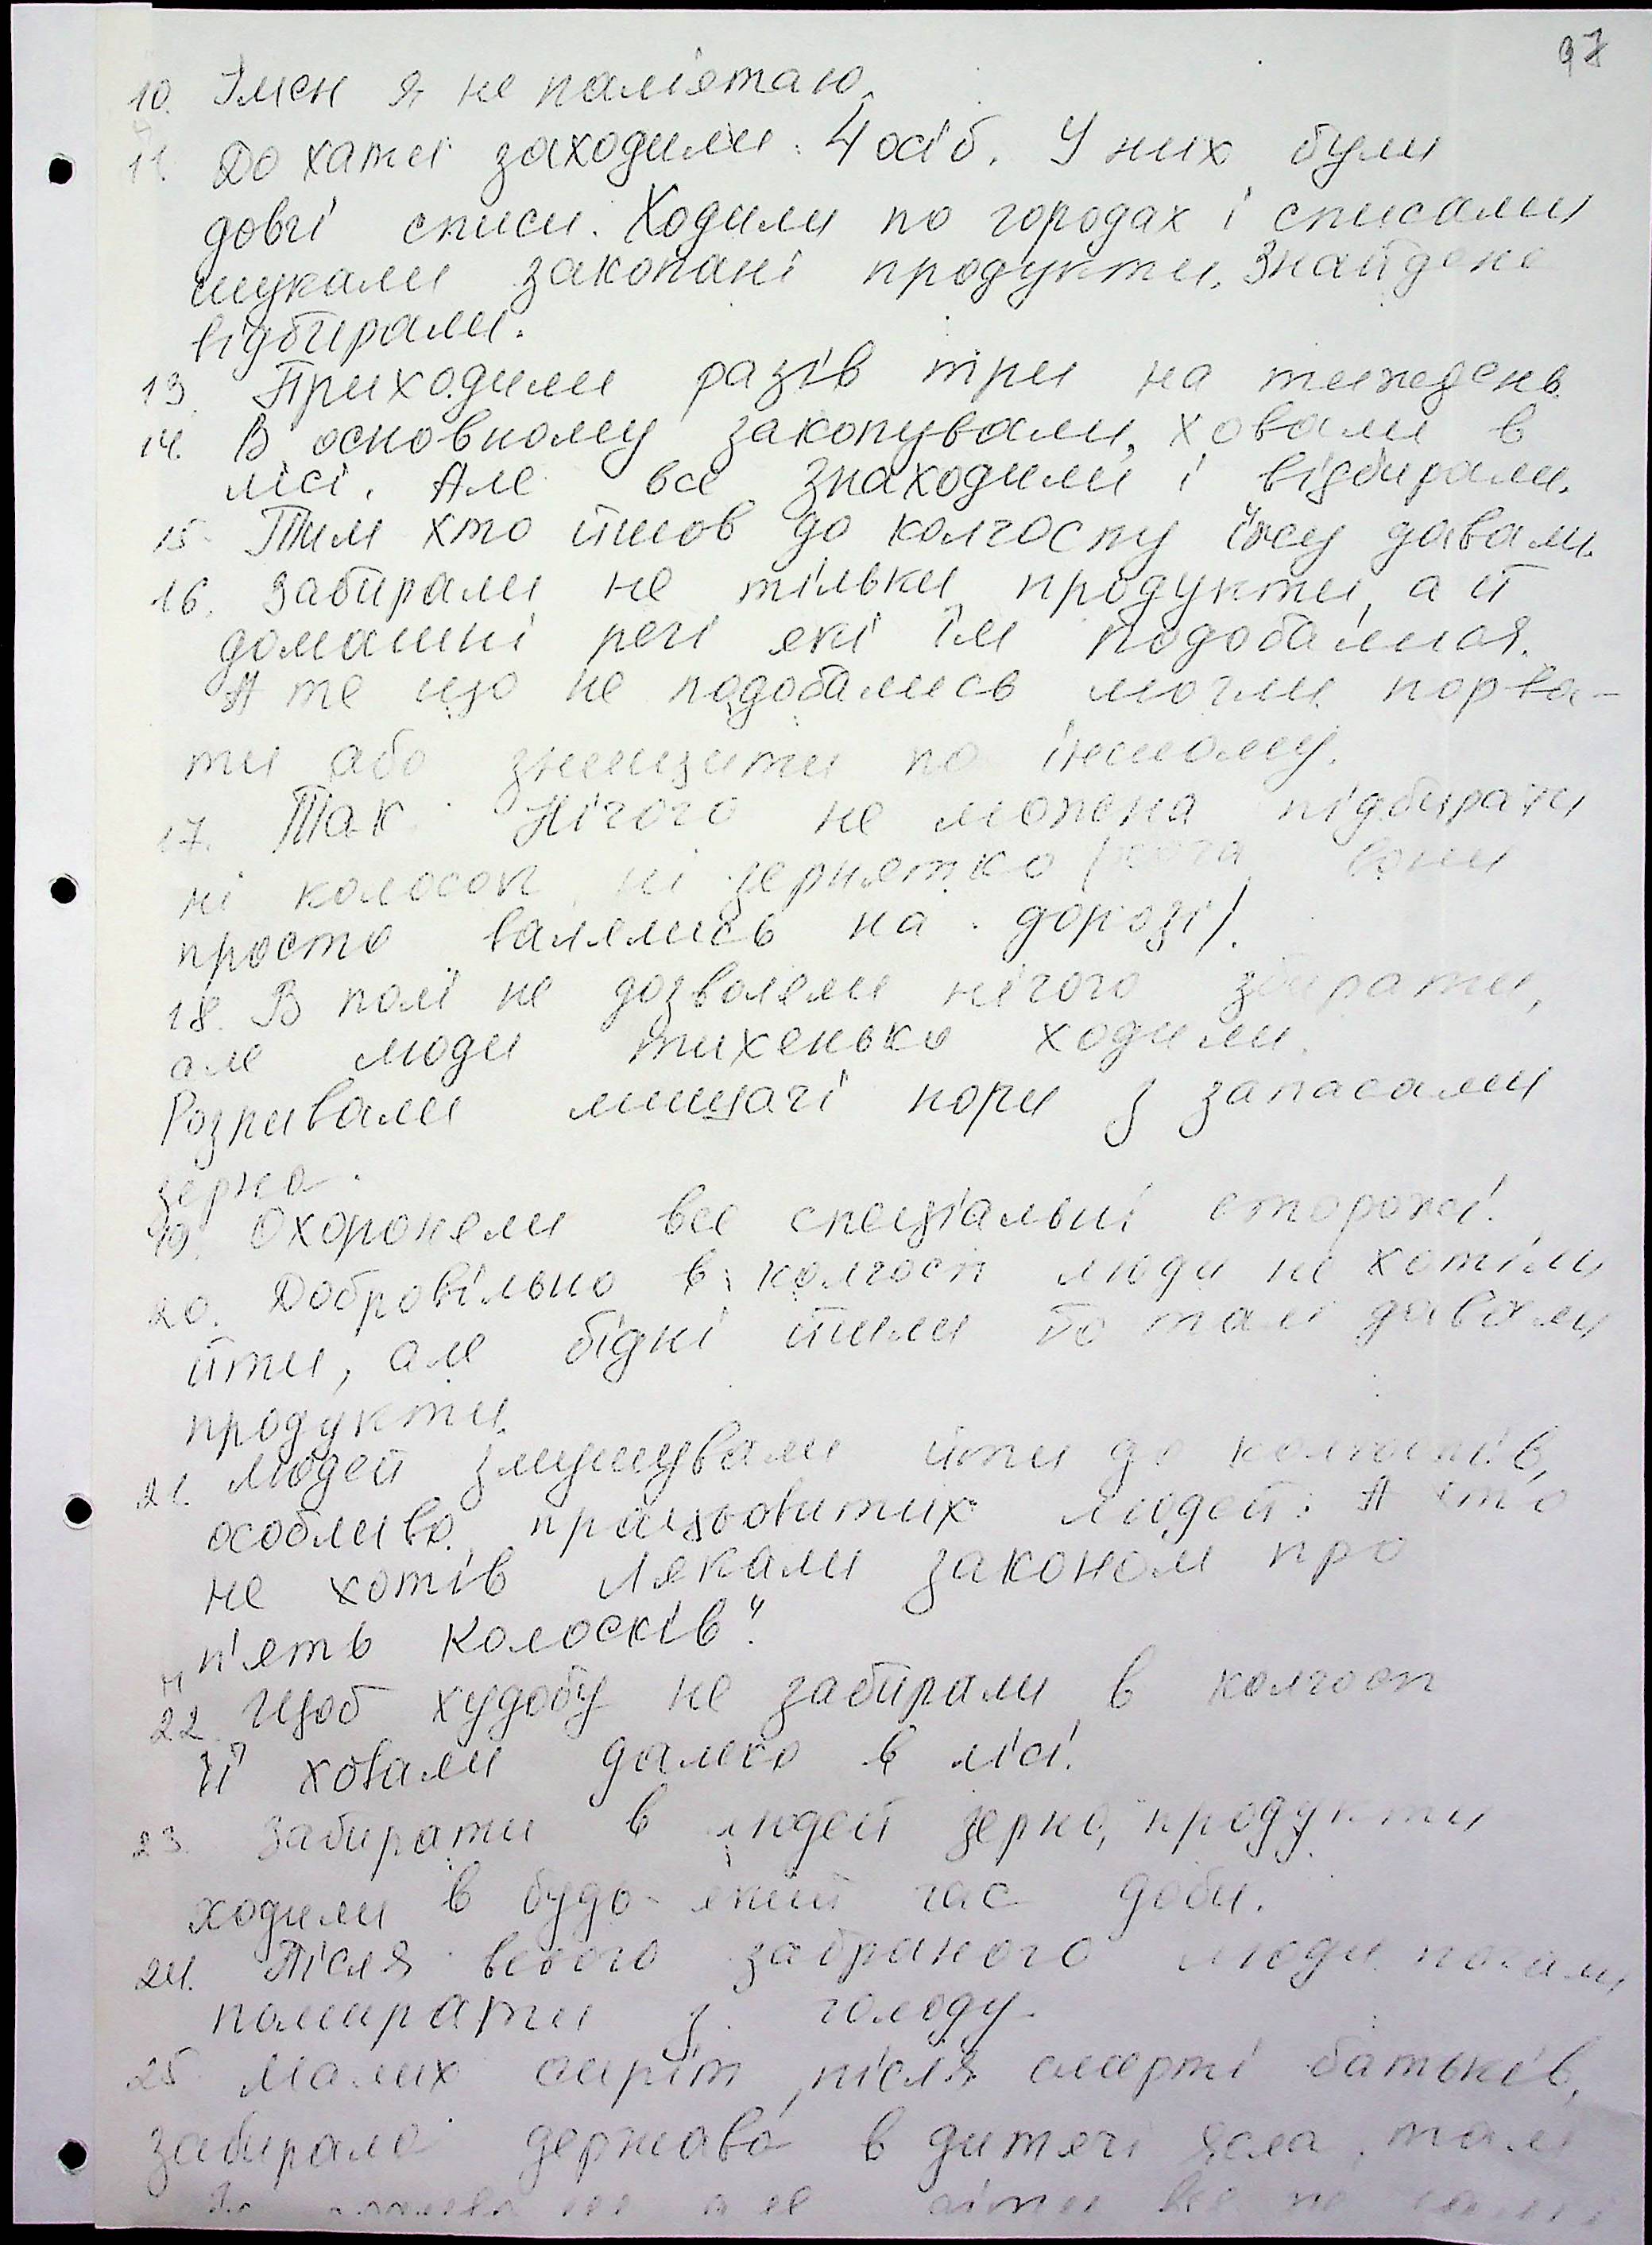 97
10. Імен я не пам'ятаю.
11. До хати заходили 4 осіб. У них були
довгі списи. Ходили по городах і списами
шукали закопані продукти. Знайдене
відбирали.
13. Приходили разів три на тиждень.
14. В основному закопували, ховали в
лісі. Але все знаходили і відбирали.
15. Тим хто йшов до колгоспу їжу давали.
16. Забирали не тільки продукти, а й
домашні речі які їм подобались.
А те що не подобались могли порва-
ти або знищити по іншому.
17. Так. Нічого не можна підбирати
ні колосок, ні зернятко (хоча вони
просто валялись на дорозі).
18. В полі не дозволяли нічого збирати,
але люди тихенько ходили.
Розривали мишачі нори з запасами
зерна.
19. Охороняли все спеціальні сторожі.
20. Добровільно в колгосп люди не хотіли
йти, але бідні йшли бо там давали
продукти.
21. Людей змушували йти до колгоспів,
особливо працьовитих людей. А хто
не хотів лякали законом про
"п'ять колосків".
22. Щоб худобу не забирали в колгосп
її ховали далеко в лісі.
23. Забирати в людей зерно, продукти
ходили в будь-який час доби.
24. Після всього забраного люди почали
помирати з голоду.
25. Малих сиріт, після смерті батьків,
забирала держава в дитячі ясла, там
їх діти все